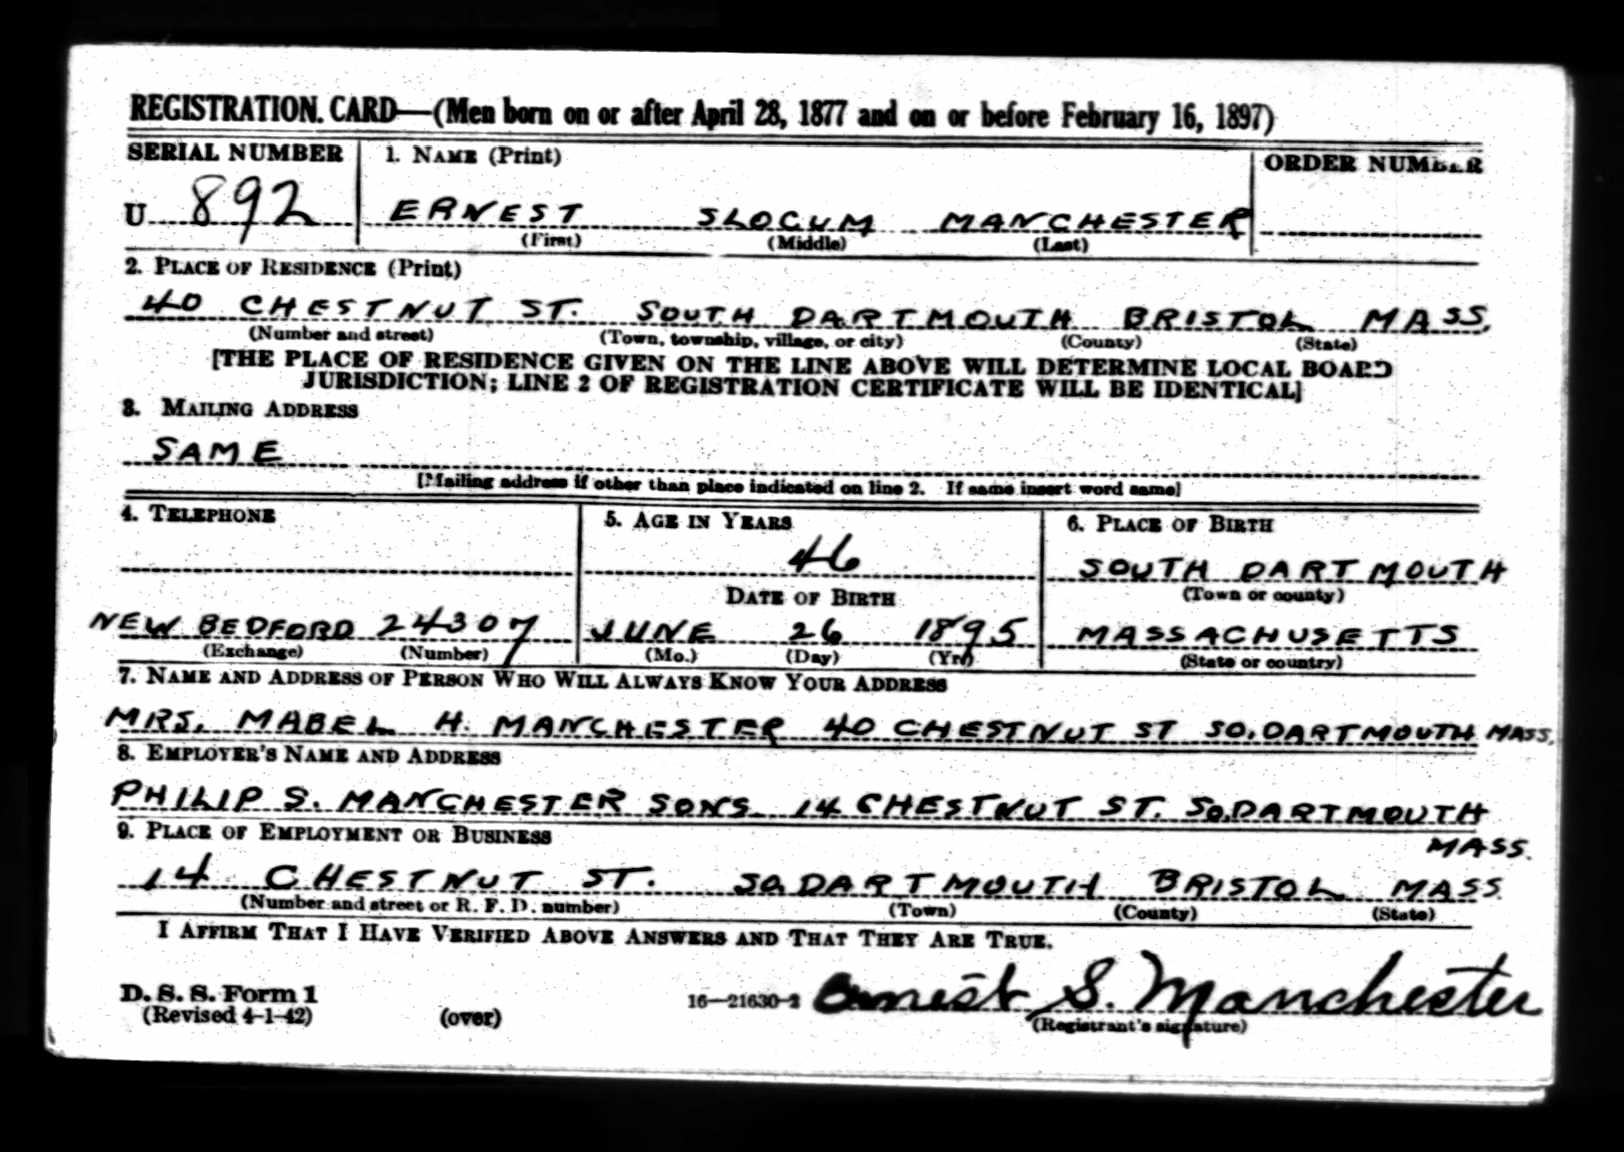 REGISTRATION CARD—(Men born on or after April 28, 1877 and on or before February 16, 1897)
SERIAL NUMBER 1. NAME (Print) ORDER NUMBER
U 892 ERNEST SLOCUM MANCHESTER
(First) (Middle) (Last)
2. PLACE OF RESIDENCE (Print)
40 CHESTNUT ST. SOUTH DARTMOUTH BRISTOL MASS.
(Number and street) (Town, township, village, or city) (County) (State)
[THE PLACE OF RESIDENCE GIVEN ON THE LINE ABOVE WILL DETERMINE LOCAL BOARD
JURISDICTION; LINE 2 OF REGISTRATION CERTIFICATE WILL BE IDENTICAL]
3. MAILING ADDRESS
SAME
[Mailing address if other than place indicated on line 2. If same insert word same]
4. TELEPHONE 5. AGE IN YEARS 6. PLACE OF BIRTH
46 SOUTH DARTMOUTH
DATE OF BIRTH (Town or county)
NEW BEDFORD 24307 JUNE 26 1895 MASSACHUSETTS
(Exchange) (Number) (Mo.) (Day) (Yr.) (State or country)
7. NAME AND ADDRESS OF PERSON WHO WILL ALWAYS KNOW YOUR ADDRESS
MRS. MABEL H. MANCHESTER 40 CHESTNUT ST SO. DARTMOUTH MASS.
8. EMPLOYER'S NAME AND ADDRESS
PHILIP S. MANCHESTER SONS 14 CHESTNUT ST. SO. DARTMOUTH
MASS.
9. PLACE OF EMPLOYMENT OR BUSINESS
14 CHESTNUT ST. SO. DARTMOUTH BRISTOL MASS.
(Number and street or R. F. D. number) (Town) (County) (State)
I AFFIRM THAT I HAVE VERIFIED ABOVE ANSWERS AND THAT THEY ARE TRUE.
D. S. S. Form 1
(Revised 4-1-42) (over) 16—21630-2 Ernest S. Manchester
(Registrant's signature)